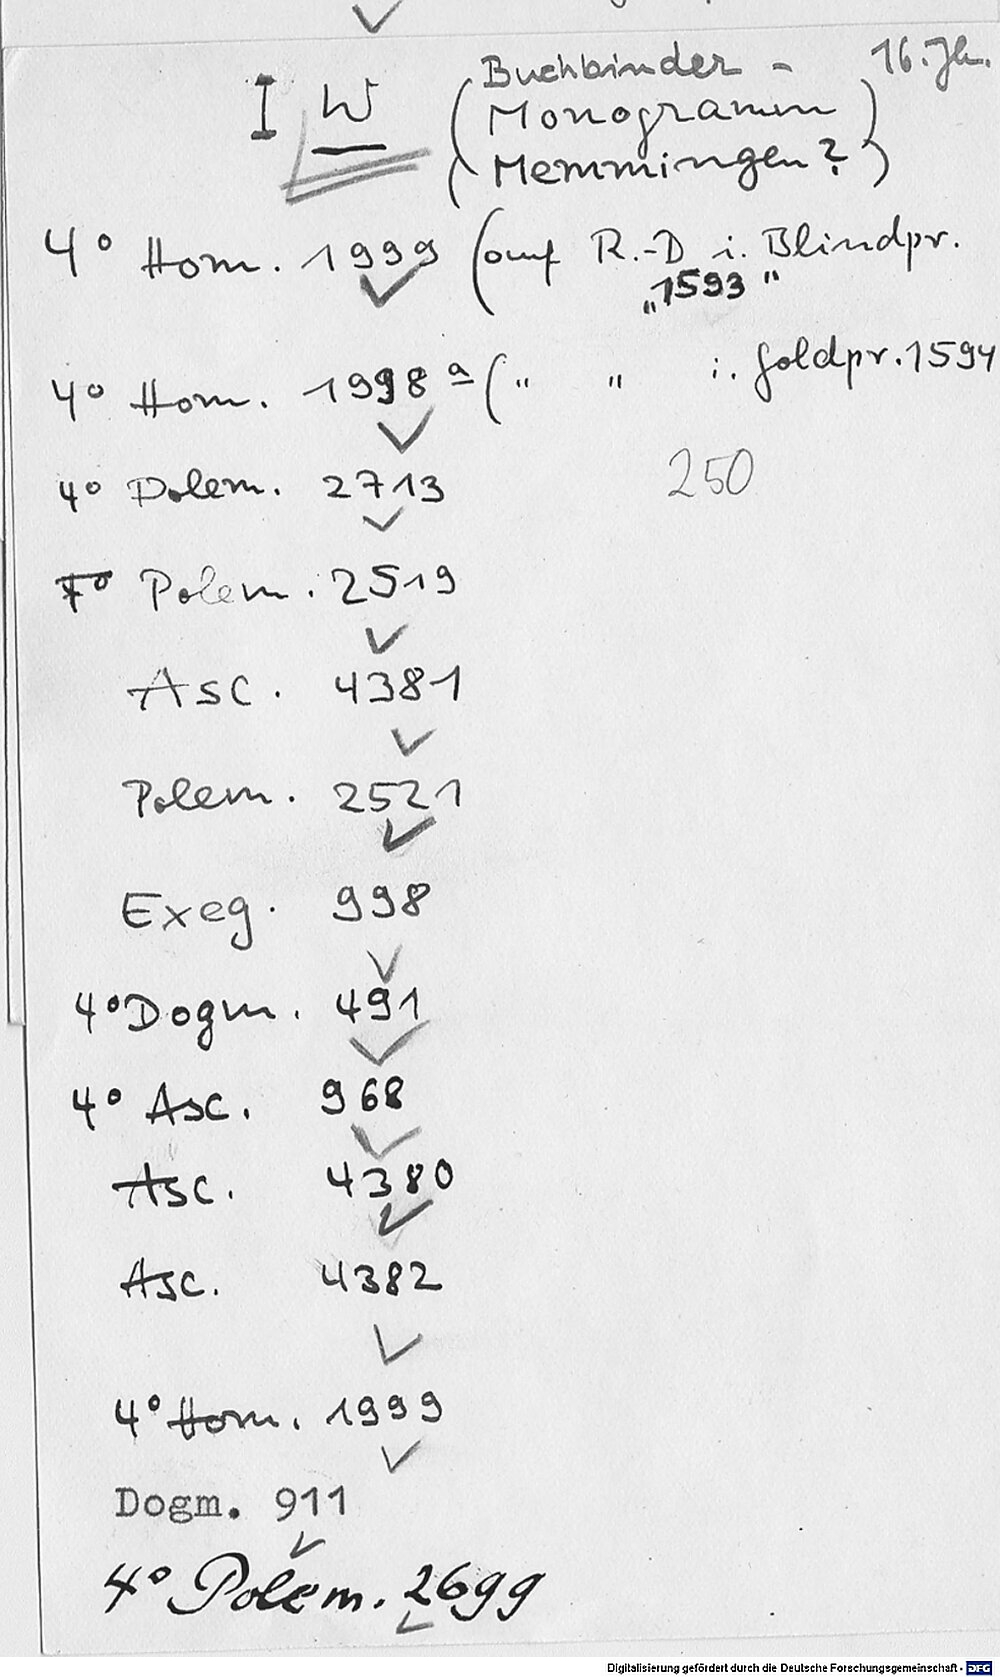 Buchbinder - 16. Jh.
I W (Monogramm)
(Memmingen?)
4° Hom. 1999 (auf R.-D i. Blindpr.
"1593"
4° Hom. 1998 a (" " i. Goldpr. 1594
4° Polem. 2713 250
F° Polem. 2519
Asc. 4381
Polem. 2521
Exeg. 998
4° Dogm. 491
4° Asc. 968
Asc. 4380
Asc. 4382
4° Hom. 1999
Dogm. 911
4° Polem. 2699
Digitalisierung gefördert durch die Deutsche Forschungsgemeinschaft - DFG